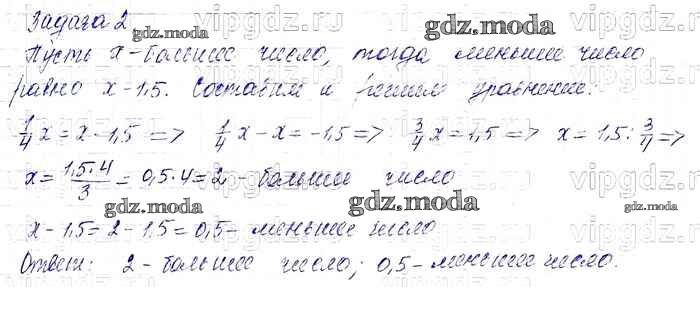 Задача 2
Пусть x - большее число, тогда меньшее число
равно x - 1,5. Составим и решим уравнение:
1/4 x = x - 1,5 => 1/4 x - x = -1,5 => 3/4 x = 1,5 => x = 1,5 : 3/4 =>
x = 1,5·4/3 = 0,5·4 = 2 - большее число
x - 1,5 = 2 - 1,5 = 0,5 - меньшее число
Ответ: 2 - большее число; 0,5 - меньшее число.
gdz.moda
gdz.moda
gdz.moda
gdz.moda
gdz.moda
vipgdz.ru